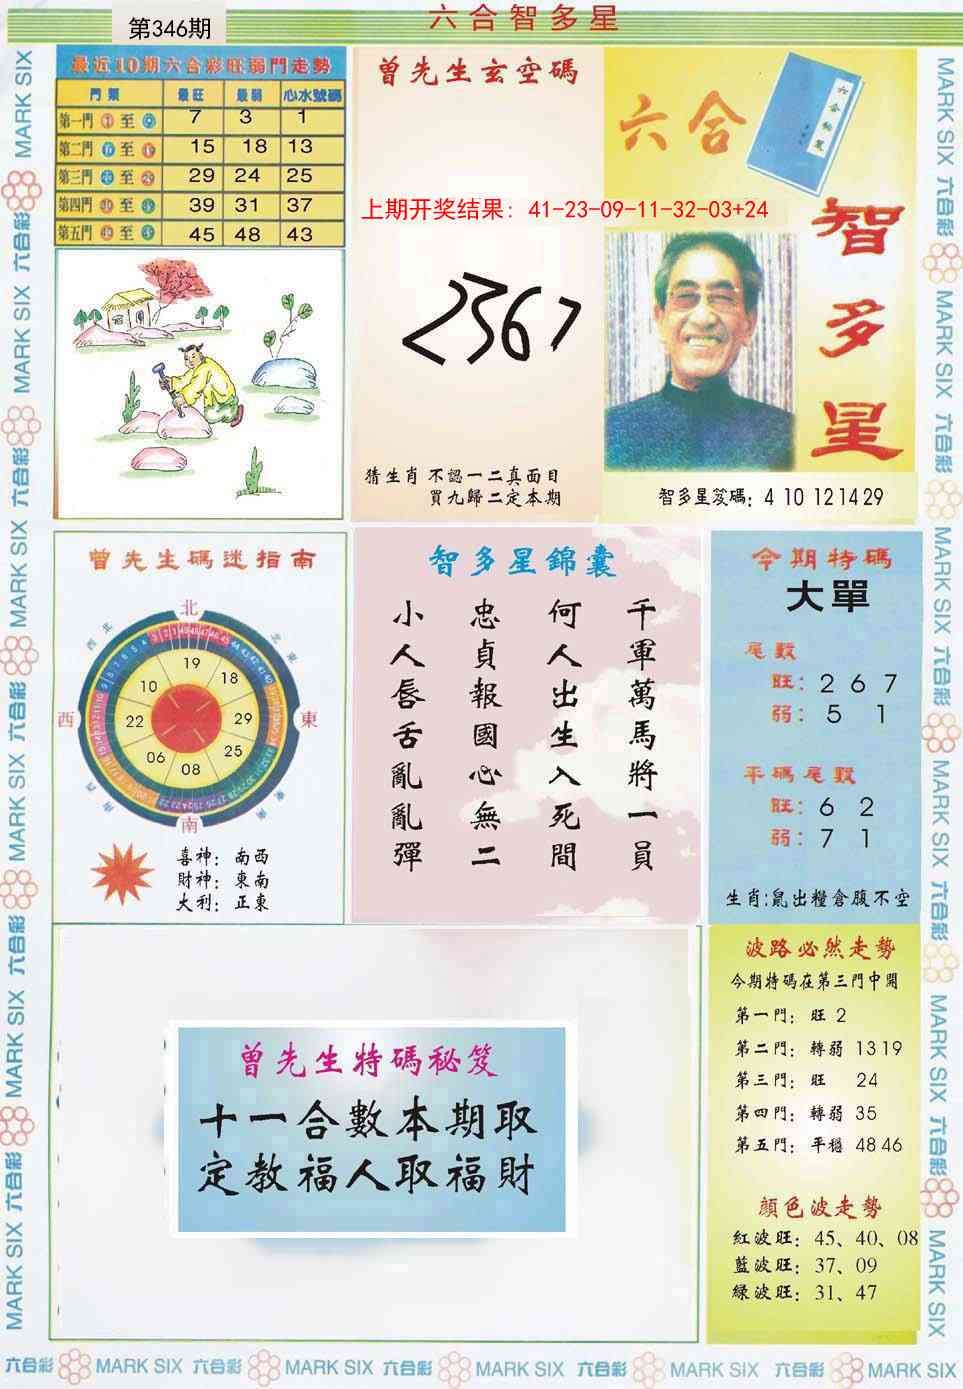 六合智多星
第346期
最近10期六合彩旺弱門走勢
門類 最旺 最弱 心水號碼
第一門 至 7 3 1
第二門 至 15 18 13
第三門 至 29 24 25
第四門 至 39 31 37
第五門 至 45 48 43
曾先生玄空碼
上期开奖结果：41-23-09-11-32-03+24
2367
猜生肖 不認一二真面目
買九歸二定本期
六合
智多星
智多星笈碼：4 10 12 14 29
曾先生碼迷指南
北
西北
東
西
南
19
18
29
25
08
06
22
10
喜神：南西
財神：東南
大利：正東
智多星錦囊
千軍萬馬將一員
何人出生入死間
忠貞報國心無二
小人唇舌亂亂彈
今期特碼
大單
尾數
旺：2 6 7
弱：5 1
平碼尾數
旺：6 2
弱：7 1
生肖:鼠出糧倉腹不空
曾先生特碼秘笈
十一合數本期取
定教福人取福財
波路必然走勢
今期特碼在第三門中開
第一門：旺 2
第二門：轉弱 13 19
第三門：旺 24
第四門：轉弱 35
第五門：平穩 48 46
顏色波走勢
紅波旺：45、40、08
藍波旺：37、09
綠波旺：31、47
MARK SIX 六合彩 MARK SIX 六合彩 MARK SIX 六合彩 MARK SIX 六合彩 MARK SIX 六合彩 MARK SIX
MARK SIX 六合彩 MARK SIX 六合彩 MARK SIX 六合彩 MARK SIX 六合彩 MARK SIX 六合彩 MARK SIX
六合彩 MARK SIX 六合彩 MARK SIX 六合彩 MARK SIX 六合彩 MARK SIX